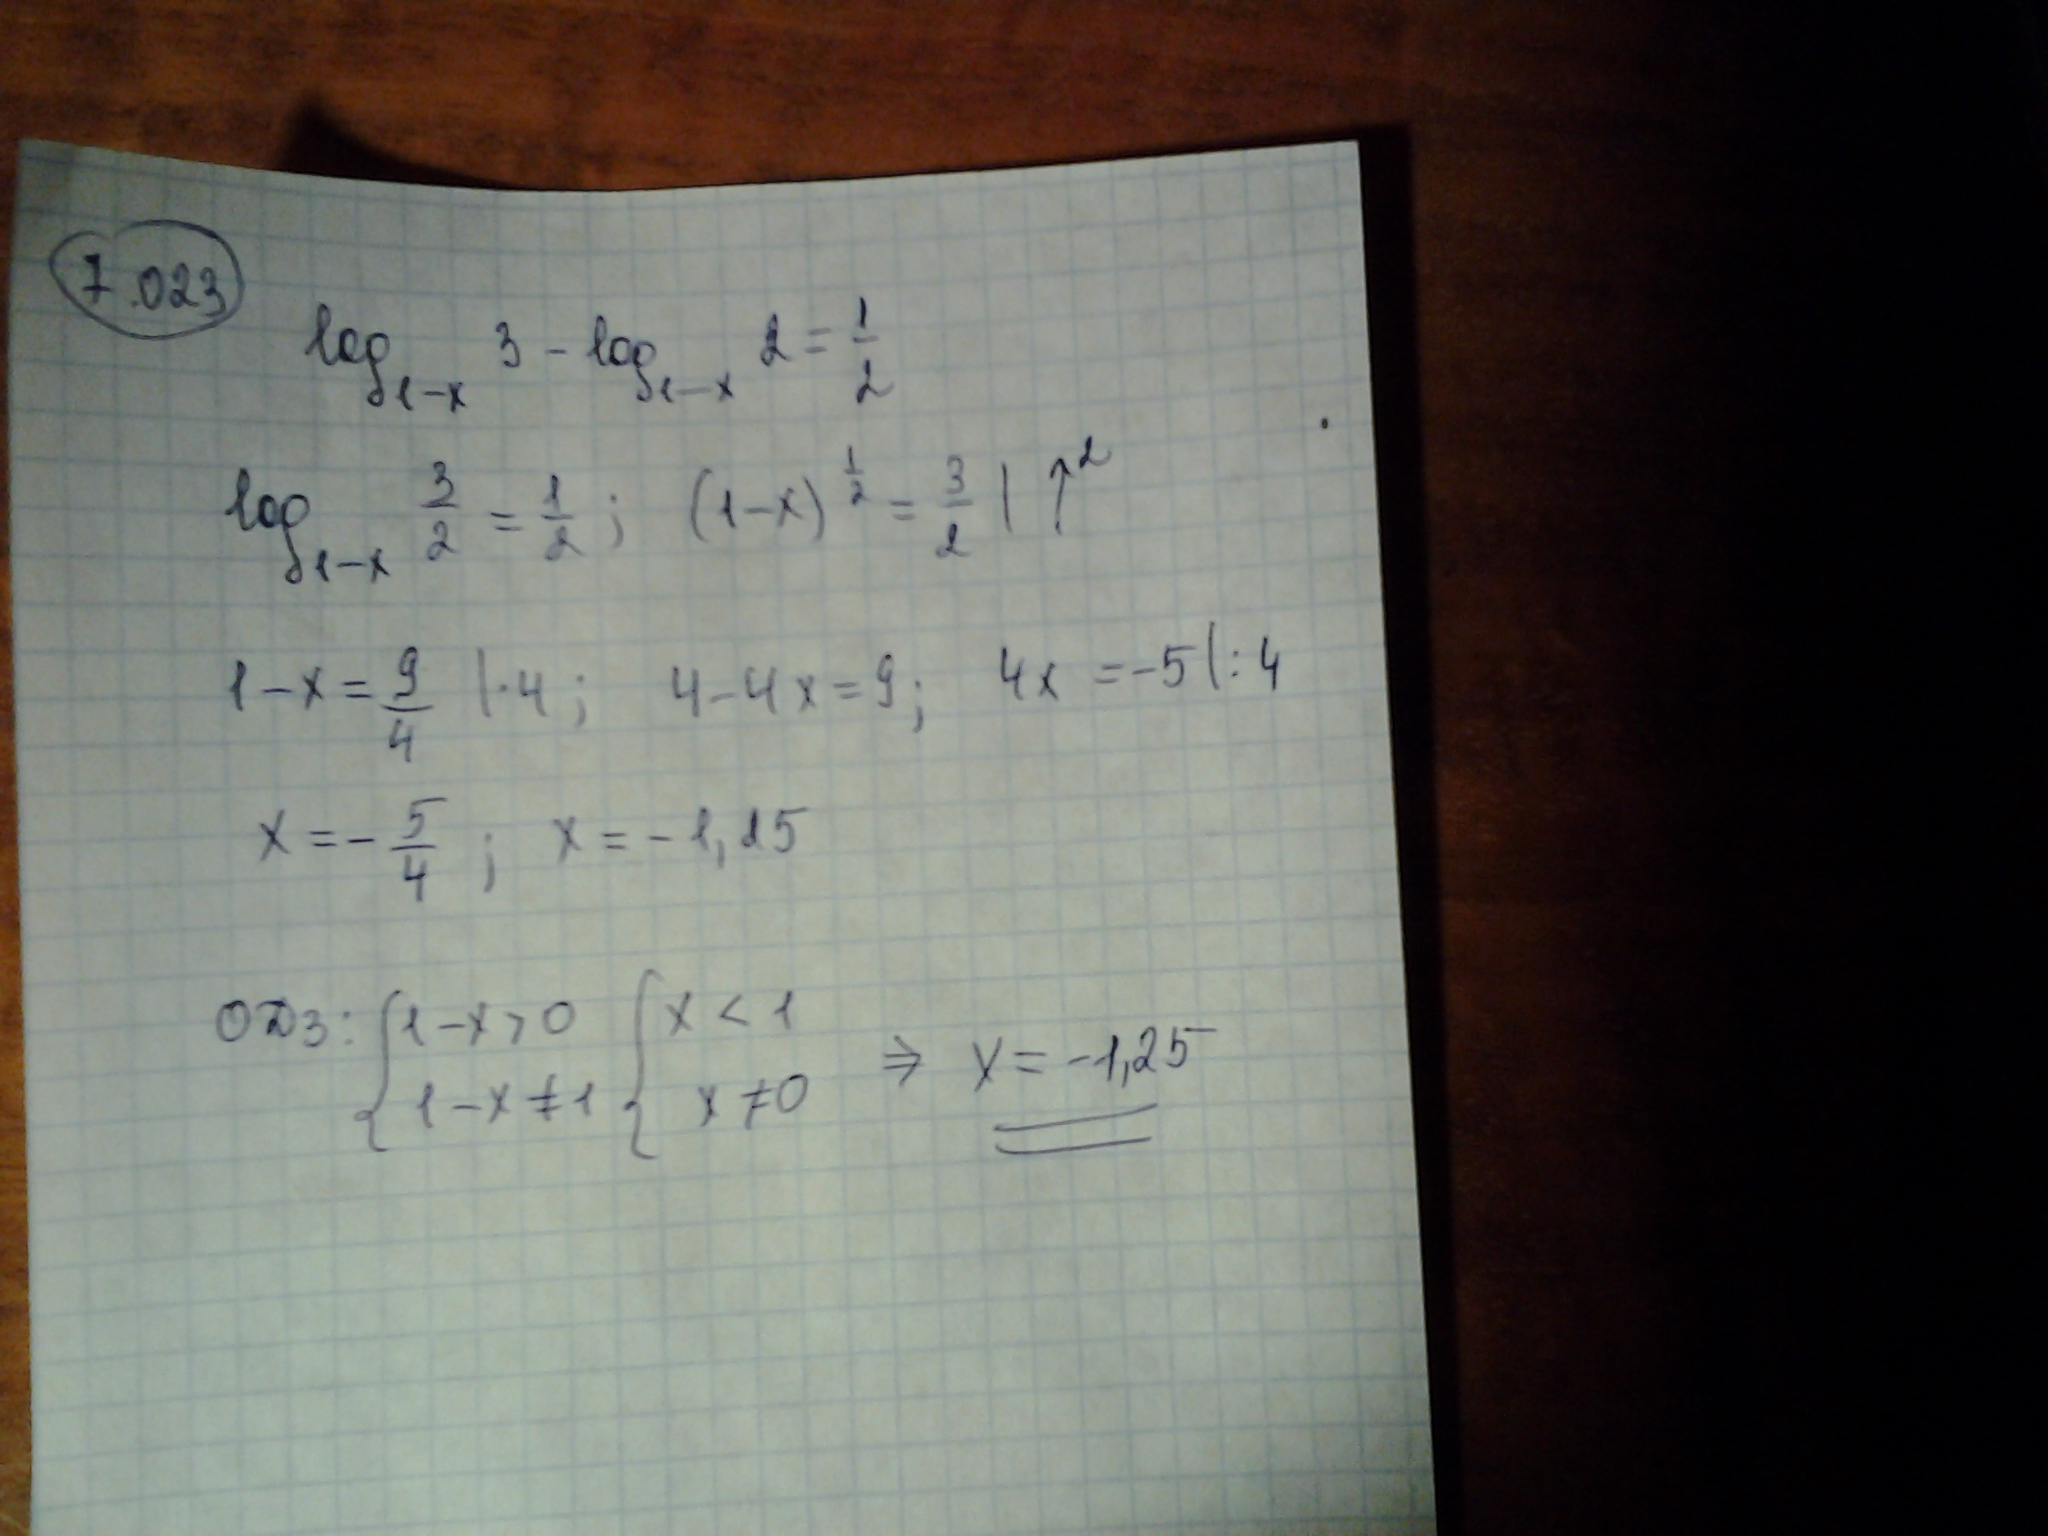 7.023
log₁₋ₓ 3 - log₁₋ₓ 2 = 1/2
log₁₋ₓ 3/2 = 1/2 ; (1-x)^(1/2) = 3/2 | ↑²
1-x = 9/4 |·4 ; 4-4x=9; 4x = -5 |:4
x = - 5/4 ; x = -1,25
ОДЗ: { 1-x>0 { x < 1
{ 1-x≠1 { x ≠0 ⇒ x = -1,25